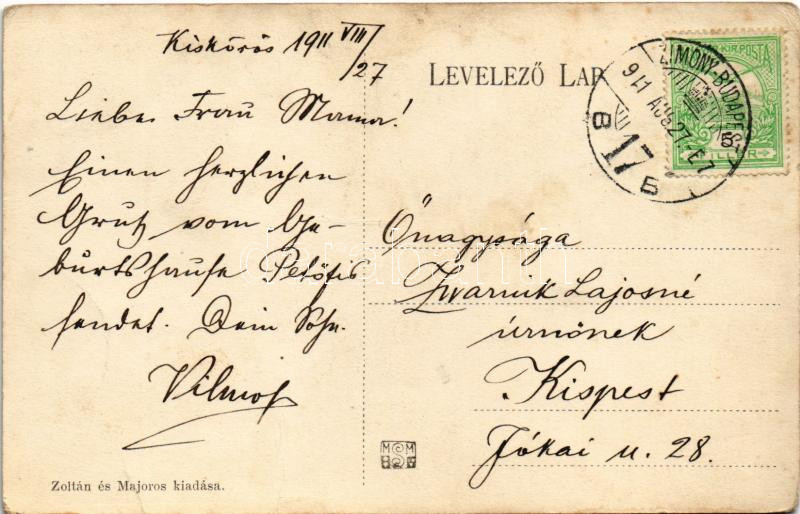 Kiskőrös 1911 VIII/27
Liebe Frau Mama!
Einen herzlichen
Gruß vom Ge-
burtshause Petőfis
sendet. Dein Sohn
Vilmos
Zoltán és Majoros kiadása.
LEVELEZŐ LAP
ZIMONY-BUDAPEST
911 AUG 27
17
Őnagysága
Zvarnik Lajosné
úrnőnek
Kispest
Jókai u. 28.
darabanth